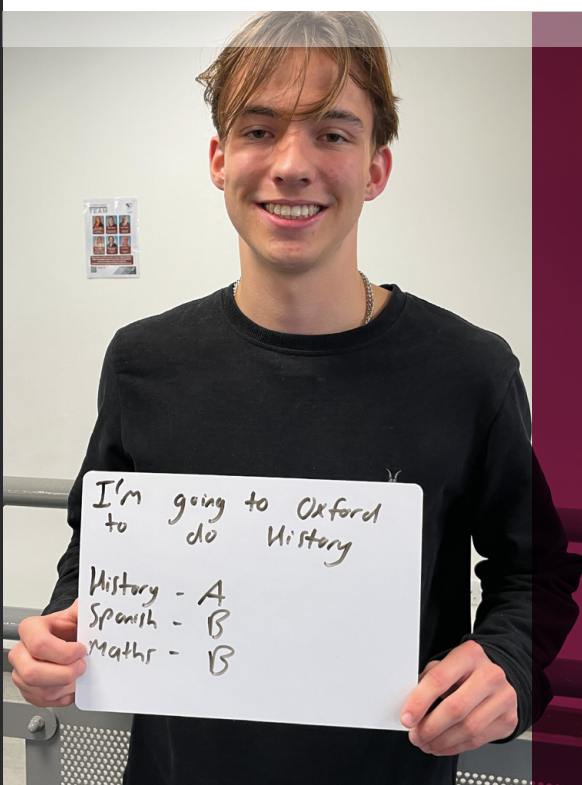 TEAM
I'm going to Oxford
to do History
History - A
Spanish - B
Maths - B